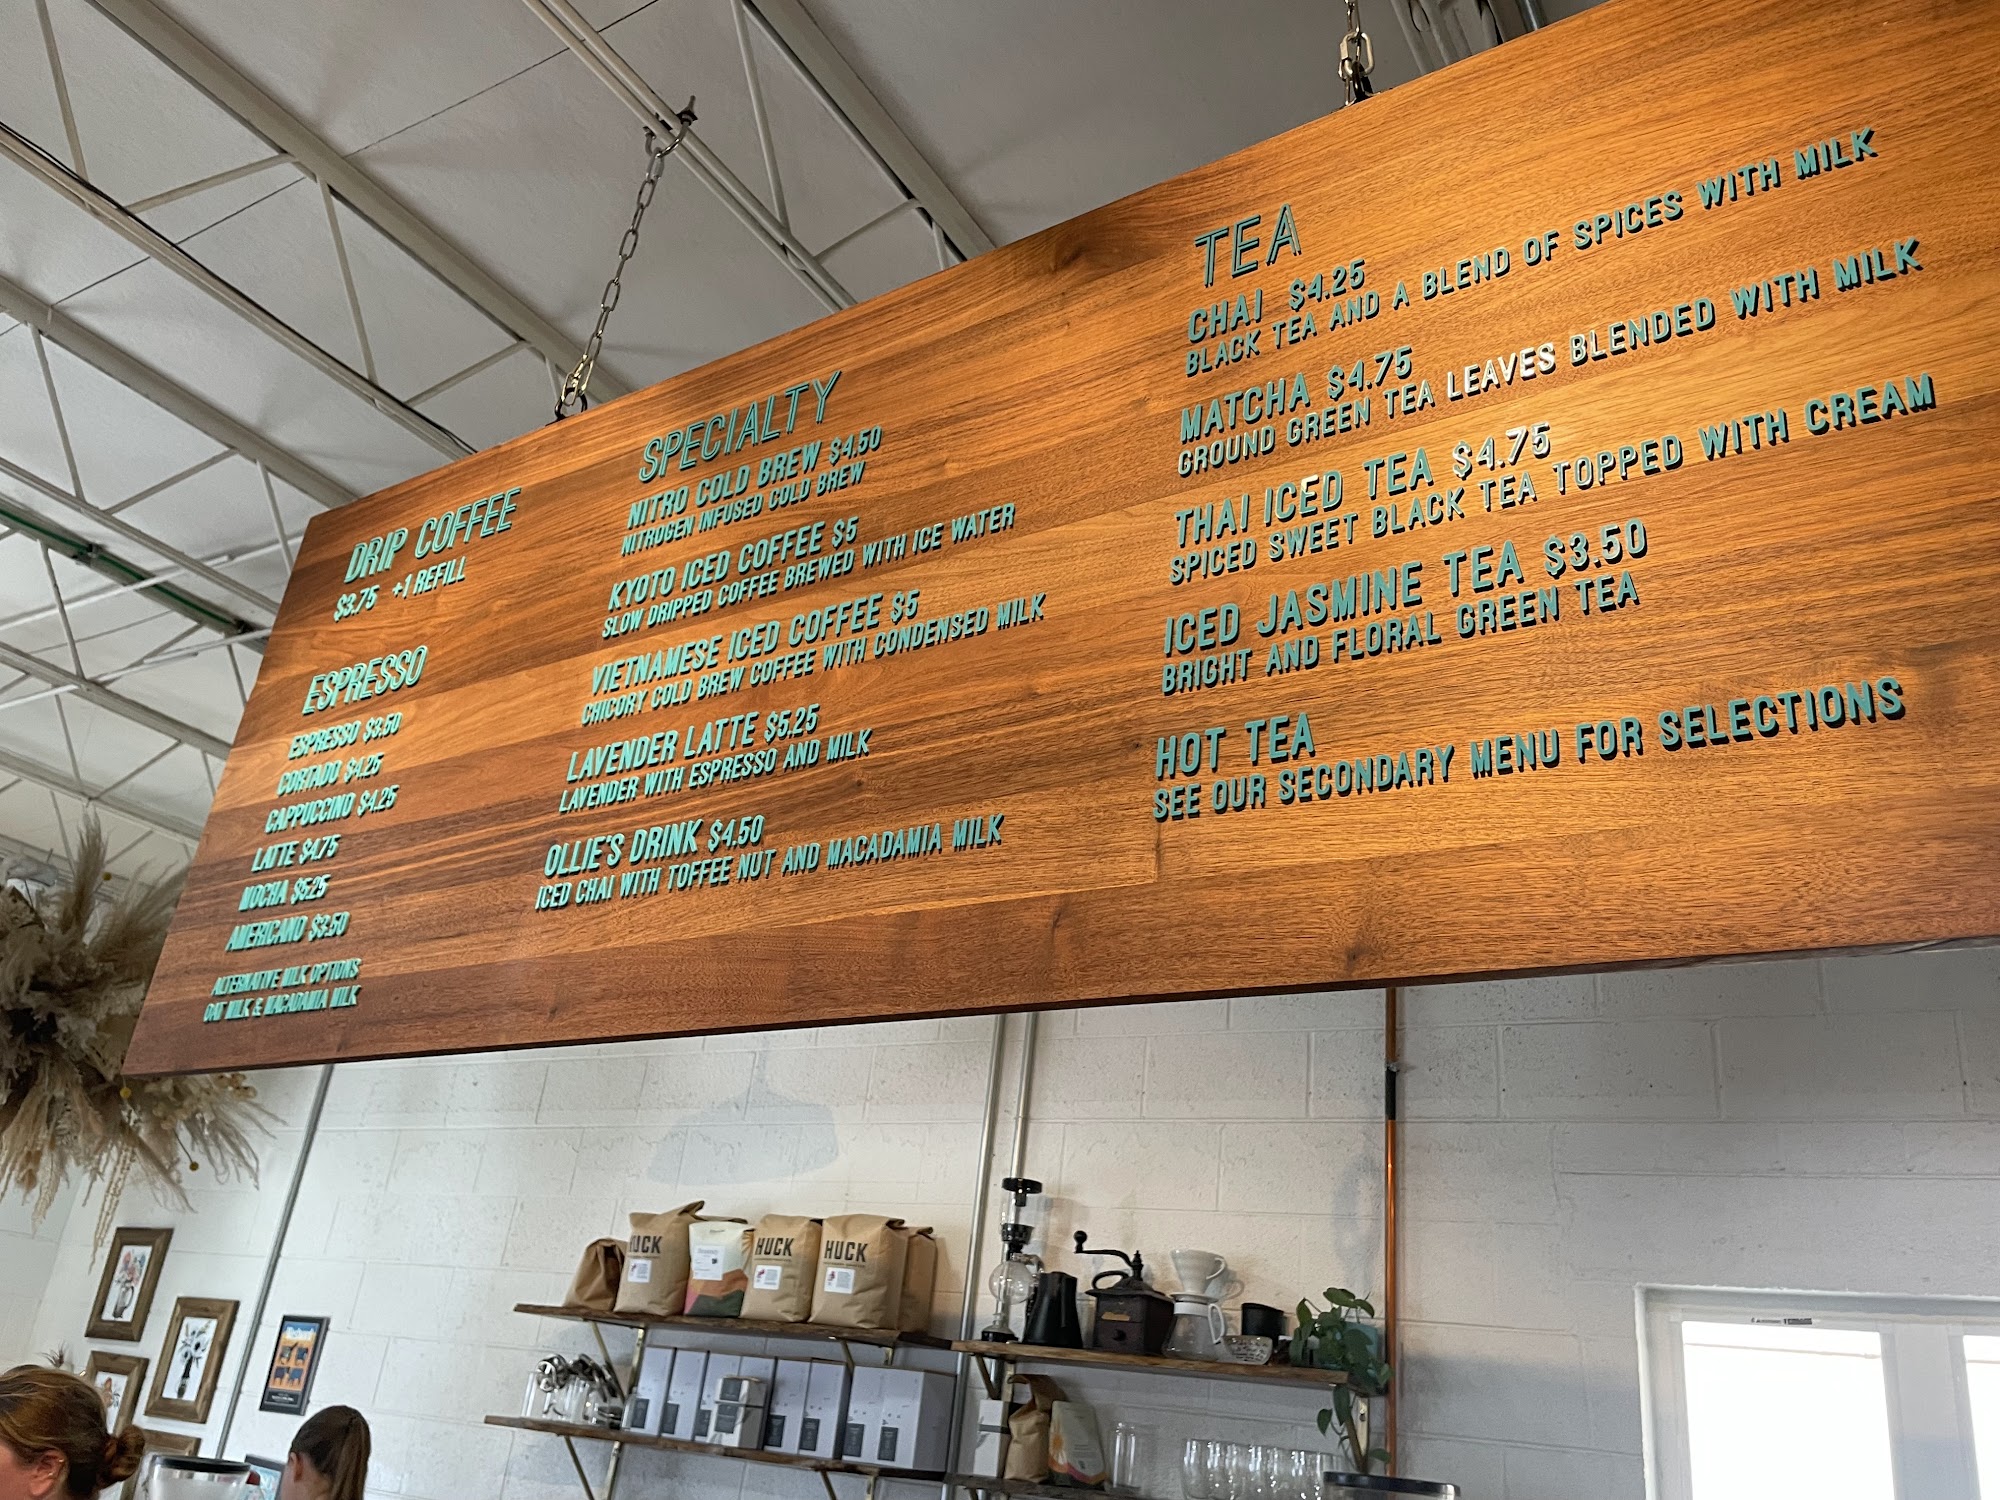 DRIP COFFEE
$3.75 +1 REFILL
ESPRESSO
ESPRESSO $3.50
CORTADO $4.25
CAPPUCCINO $4.25
LATTE $4.75
MOCHA $5.25
AMERICANO $3.50
ALTERNATIVE MILK OPTIONS
OAT MILK & MACADAMIA MILK
SPECIALTY
NITRO COLD BREW $4.50
NITROGEN INFUSED COLD BREW
KYOTO ICED COFFEE $5
SLOW DRIPPED COFFEE BREWED WITH ICE WATER
VIETNAMESE ICED COFFEE $5
CHICORY COLD BREW COFFEE WITH CONDENSED MILK
LAVENDER LATTE $5.25
LAVENDER WITH ESPRESSO AND MILK
OLLIE'S DRINK $4.50
ICED CHAI WITH TOFFEE NUT AND MACADAMIA MILK
TEA
CHAI $4.25
BLACK TEA AND A BLEND OF SPICES WITH MILK
MATCHA $4.75
GROUND GREEN TEA LEAVES BLENDED WITH MILK
THAI ICED TEA $4.75
SPICED SWEET BLACK TEA TOPPED WITH CREAM
ICED JASMINE TEA $3.50
BRIGHT AND FLORAL GREEN TEA
HOT TEA
SEE OUR SECONDARY MENU FOR SELECTIONS
HUCK
HUCK
HUCK